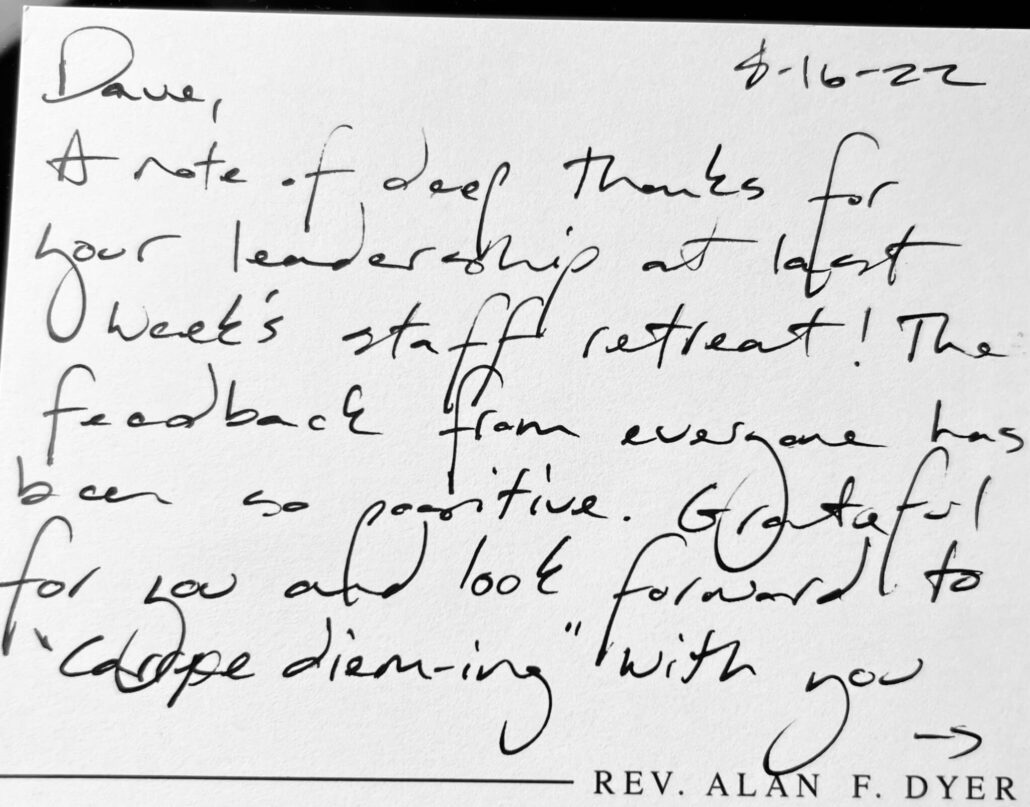 Dave,
8-16-22
A note of deep thanks for
your leadership at last
week's staff retreat! The
feedback from everyone has
been so positive. Grateful
for you and look forward to
"Carpe diem-ing" with you
→
REV. ALAN F. DYER